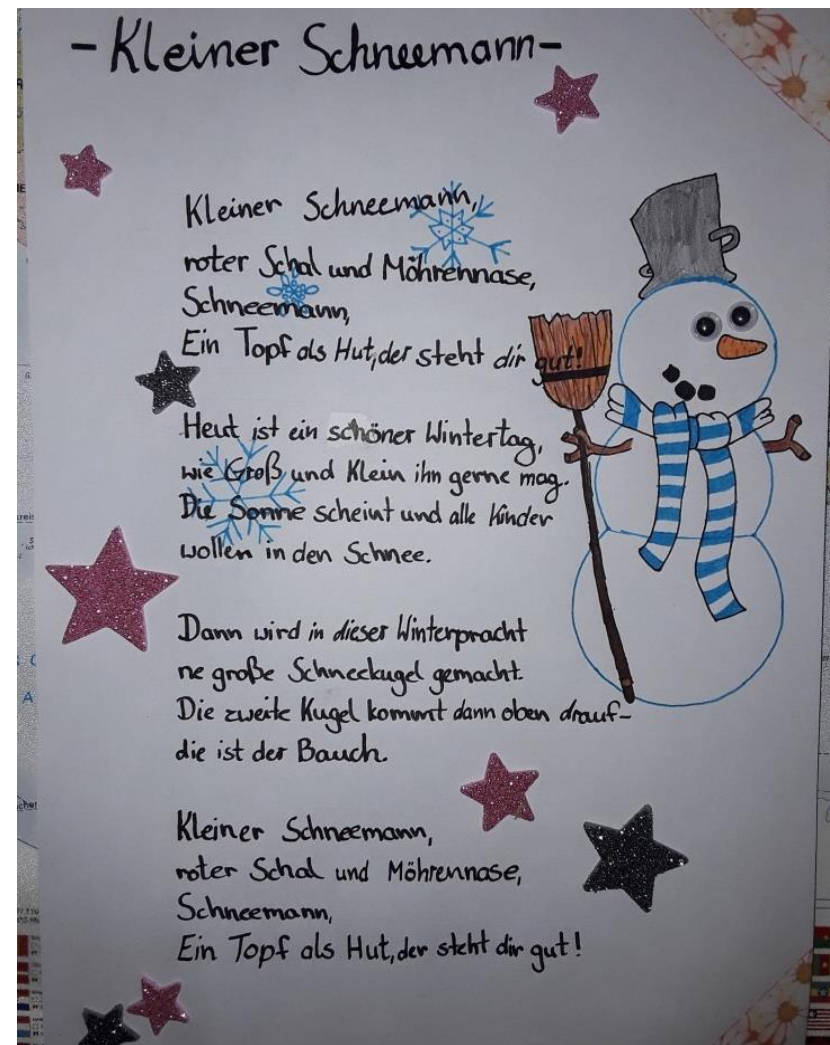 -Kleiner Schneemann-
Kleiner Schneemann,
roter Schal und Möhrennase,
Schneemann,
Ein Topf als Hut, der steht dir gut!
Heut ist ein schöner Wintertag,
wie Groß und Klein ihn gerne mag.
Die Sonne scheint und alle Kinder
wollen in den Schnee.
Dann wird in dieser Winterpracht
ne große Schneekugel gemacht.
Die zweite Kugel kommt dann oben drauf-
die ist der Bauch.
Kleiner Schneemann,
roter Schal und Möhrennase,
Schneemann,
Ein Topf als Hut, der steht dir gut!